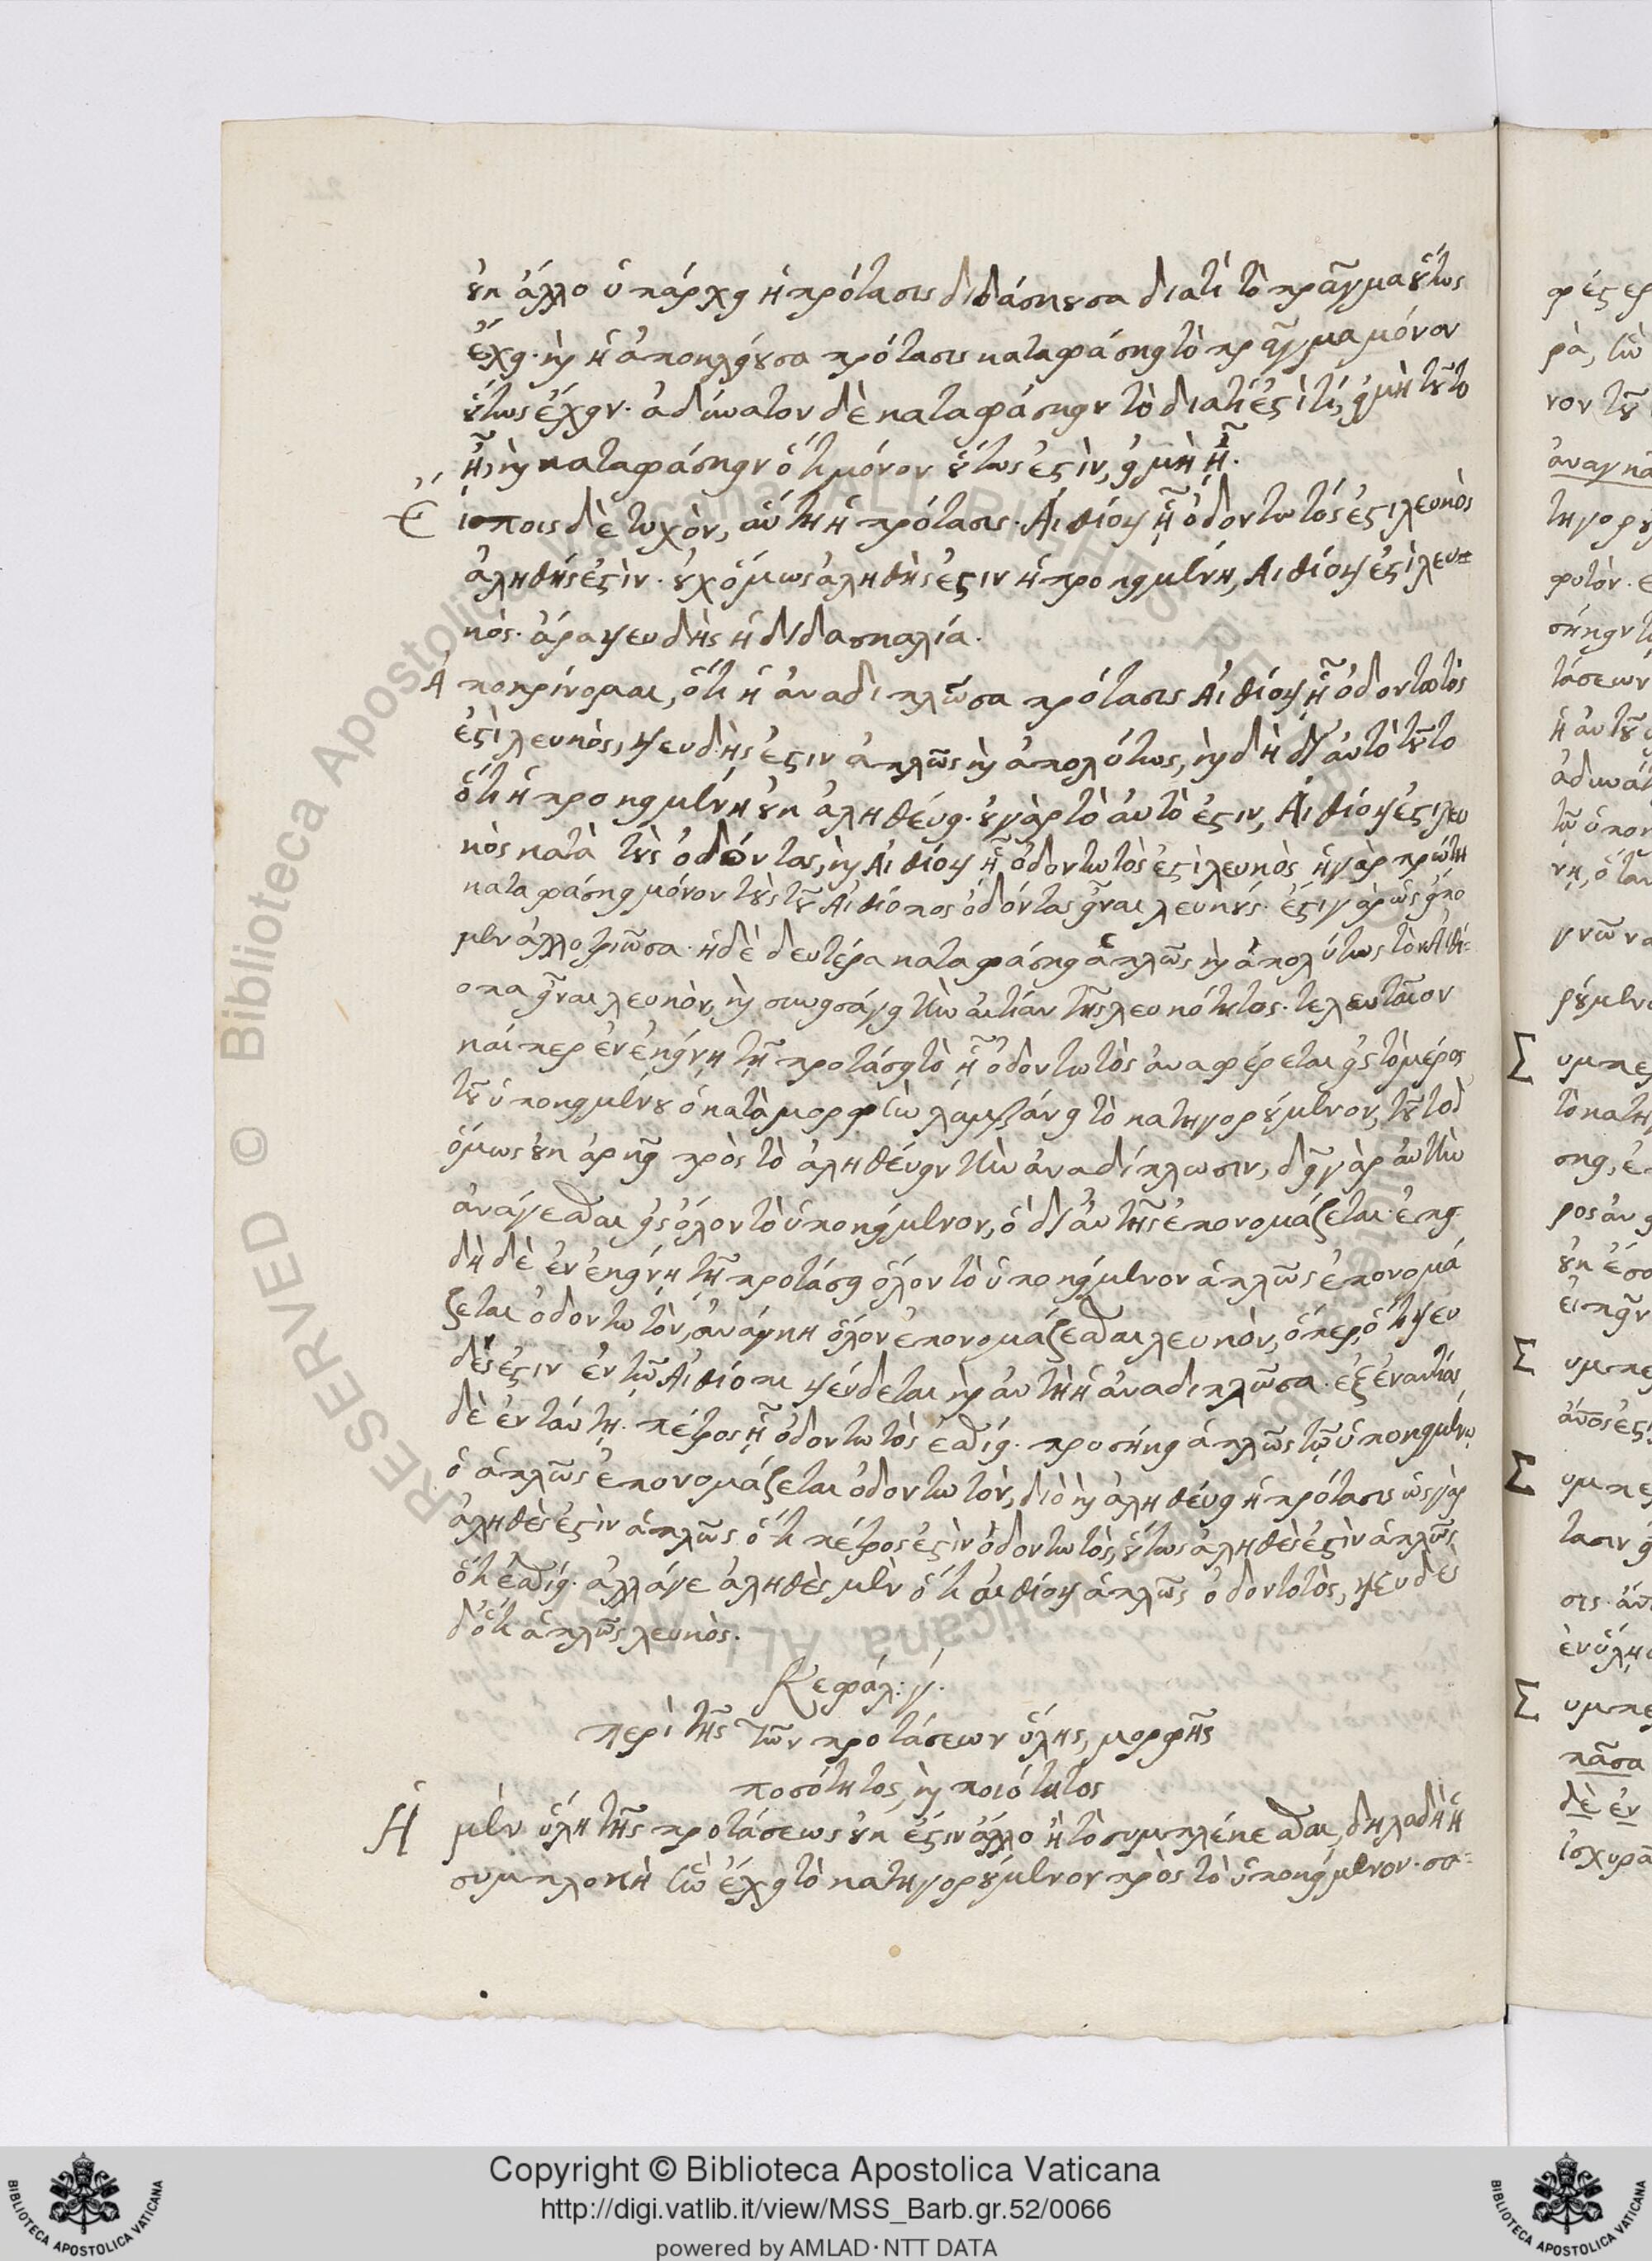 οὐκ ἄλλο ὑπάρχει ἡ πρότασις διδάσκουσα διατί τὸ πρᾶγμα οὕτως
ἔχει. καὶ ἡ ἀποκλείουσα πρότασις καταφάσκει τὸ πρᾶγμα μόνον
οὕτως ἔχειν. ἀδύνατον δὲ καταφάσκειν τὸ διατί ἐστί τι, εἰ μὴ τοῦτο
ᾖ, καὶ καταφάσκειν ὅτι μόνον οὕτως ἐστὶν, εἰ μὴ ᾖ.
Εἴποις δὲ τυχὸν, αὕτη ἡ πρότασις. Αἰθίοψ ᾗ ὀδοντωτός ἐστι λευκὸς
ἀληθής ἐστὶν. οὐχ ὅμως ἀληθής ἐστιν ἡ προκειμένη, Αἰθίοψ ἐστὶ λευ=
κὸς. ἄρα ψευδὴς ἡ διδασκαλία.
Ἀποκρίνομαι, ὅτι ἡ ἀναδιπλῶσα πρότασις Αἰθίοψ ᾗ ὀδοντωτὸς
ἐστὶ λευκὸς, ψευδὴς ἐστιν ἁπλῶς καὶ ἀπολύτως, καὶ δὴ δι' αὐτὸ τοῦτο
ὅτι ἡ προκειμένη οὐκ ἀληθεύει. οὐ γὰρ τὸ αὐτὸ ἐστιν, Αἰθίοψ ἐστι λευ
κὸς κατὰ τοὺς ὀδόντας, καὶ Αἰθίοψ ᾗ ὀδοντωτὸς ἐστὶ λευκὸς ἡ γὰρ πρώτη
καταφάσκει μόνον τοὺς τοῦ Αἰθίοπος ὀδόντας εἶναι λευκούς. ἔστι γὰρ ὡς εἴπο
μεν ἀλλοτριῶσα. ἡ δὲ δευτέρα καταφάσκει ἁπλῶς καὶ ἀπολύτως τὸν Αἰθί=
οπα εἶναι λευκὸν, καὶ συνεισάγει τὴν αἰτίαν τῆς λευκότητος. τελευταῖον
καίπερ ἐν ἐκείνῃ τῇ προτάσει τὸ ᾗ ὀδοντωτὸς ἀναφέρεται εἰς τὸ μέρος
τοῦ ὑποκειμένου ὁ κατὰ μορφὴν λαμβάνει τὸ κατηγορούμενον, τοῦτο δ'
ὅμως οὐκ ἀρκεῖ πρὸς τὸ ἀληθεύειν τὴν ἀναδίπλωσιν, δεῖ γὰρ αὐτὴν
ἀνάγεσθαι εἰς ὅλον τὸ ὑποκείμενον, ὃ δι' αὐτῆς ἐπονομάζεται. ἐπει
δὴ δὲ ἐν ἐκείνῃ τῇ προτάσει ὅλον τὸ ὑποκείμενον ἁπλῶς ἐπονομά
ζεται ὀδοντωτὸν, ἀνάγκη ὅλον ἐπονομάζεσθαι λευκὸν, ὅπερ, ὅτι ψευ
δές ἐστιν ἐν τῷ Αἰθίοπι ψεύδεται καὶ αὐτὴ ἡ ἀναδιπλῶσα. ἐξ ἐναντίας
δὲ ἐν ταύτῃ. πέτρος ᾗ ὀδοντωτὸς ἐσθίει. προσήκει ἁπλῶς τῷ ὑποκειμένῳ
ὁ ἁπλῶς ἐπονομάζεται ὀδοντωτὸν, διὸ καὶ ἀληθεύει ἡ πρότασις ὡς γὰρ
ἀληθὲς ἐστὶν ἁπλῶς ὅτι πέτρος ἐστὶν ὀδοντωτὸς, οὕτως ἀληθὲς ἐστὶν ἁπλῶς
ὅτι ἐσθίει. ἀλλάγε ἀληθὲς μὲν ὅτι αἰθίοψ ἁπλῶς ὀδοντοτὸς, ψευδὲς
δ' ὅτι ἁπλῶς λευκὸς.
Κεφάλ: γ'.
περὶ τῆς τῶν προτάσεων ὕλης, μορφῆς
ποσότητος, καὶ ποιότητος
Ἡ μὲν ὕλη τῆς προτάσεως οὐκ ἔστιν ἄλλο ἢ τὸ συμπλέκεσθαι, δηλαδὴ ἡ
συμπλοκὴ ἣν ἔχει τὸ κατηγορούμενον πρὸς τὸ ὑποκείμενον. σα=
Copyright © Biblioteca Apostolica Vaticana
http://digi.vatlib.it/view/MSS_Barb.gr.52/0066
powered by AMLAD·NTT DATA